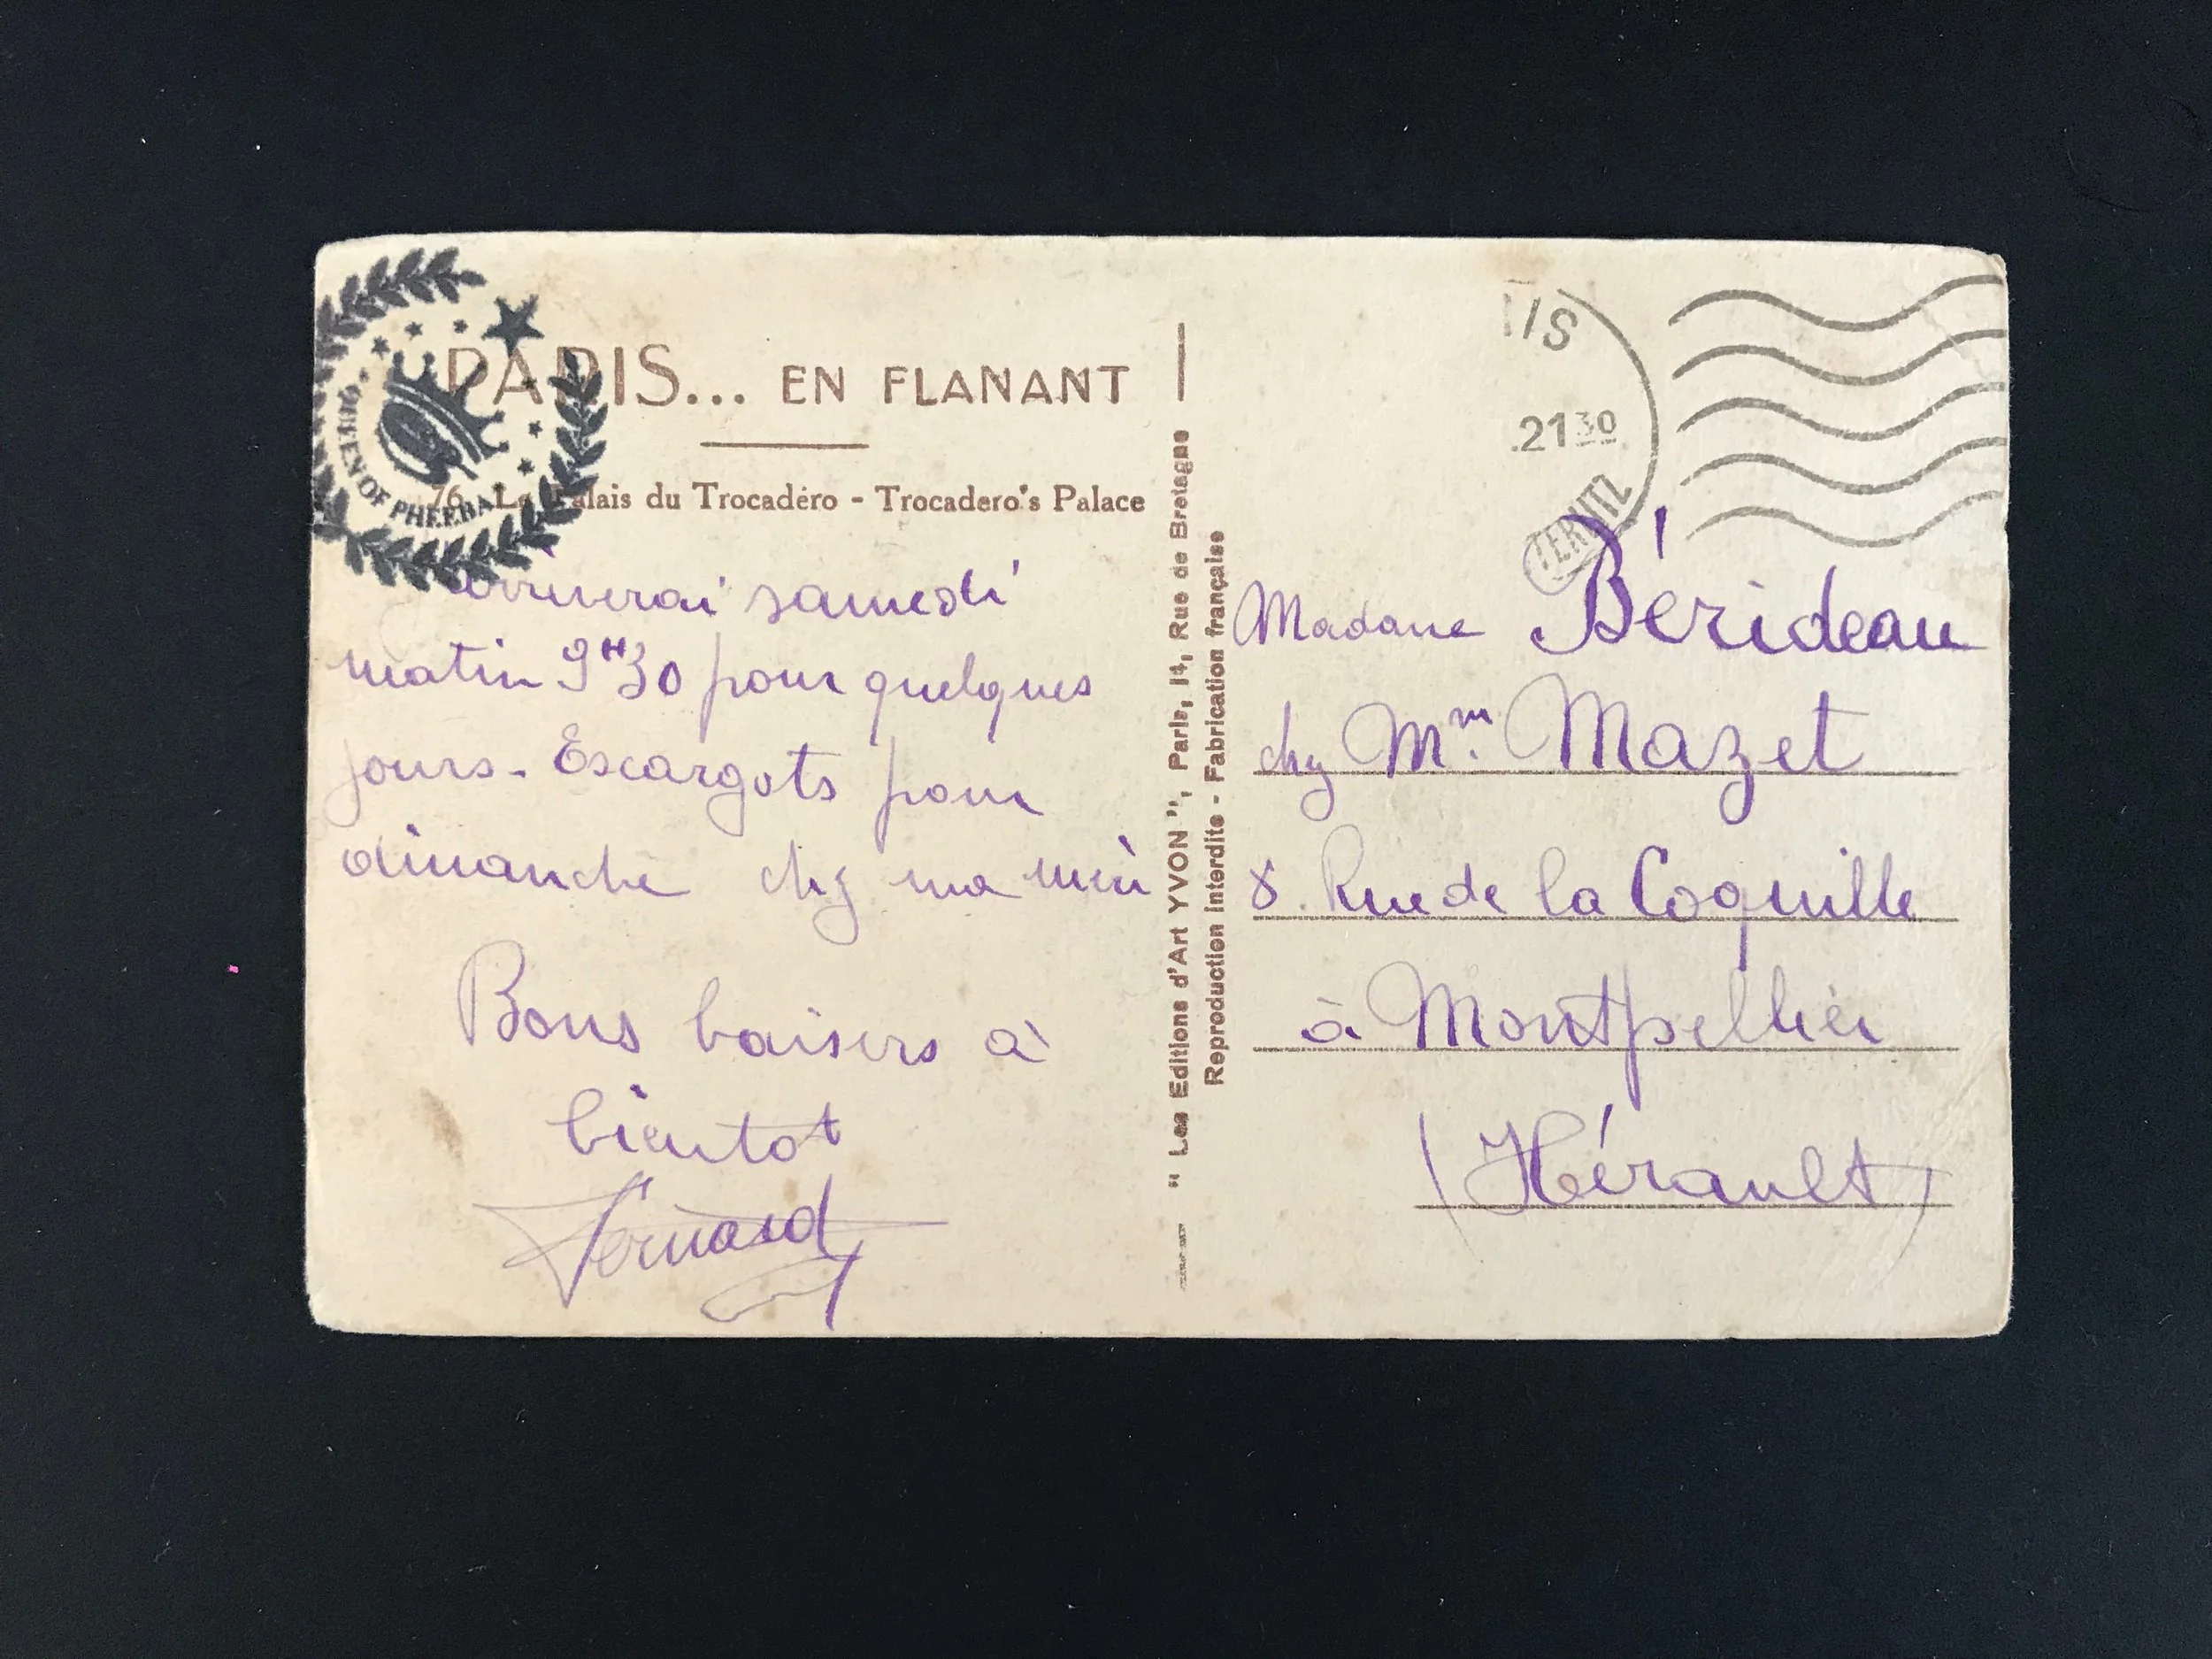 PARIS... EN FLANANT
76. Le Palais du Trocadéro - Trocadero's Palace
QUEEN OF PHEEBA
arriverai samedi
matin 9H30 pour quelques
jours - Escargots pour
dimanche chez ma mère
Bons baisers à
bientot
Fernand
" Les Editions d'Art YVON ", Paris, 14, Rue de Bretagne
Reproduction Interdite - Fabrication française
IS
21 30
Madame Bérideau
chez Mm. Mazet
8. Rue de la Coquille
à Montpellier
(Hérault)